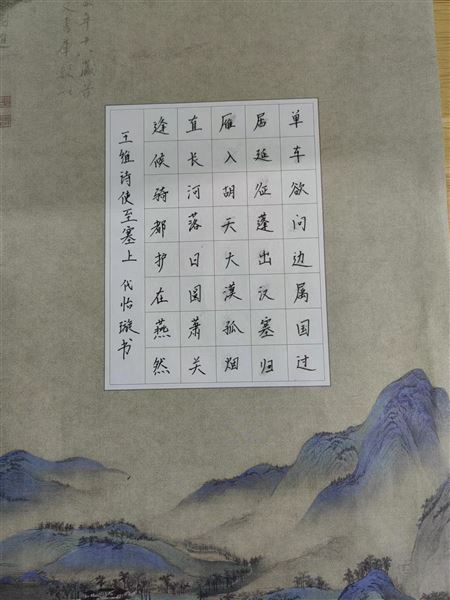 单车欲问边属国过
居延征蓬出汉塞归
雁入胡天大漠孤烟
直长河落日圆萧关
逢候骑都护在燕然
王维诗使至塞上 代怡璇书